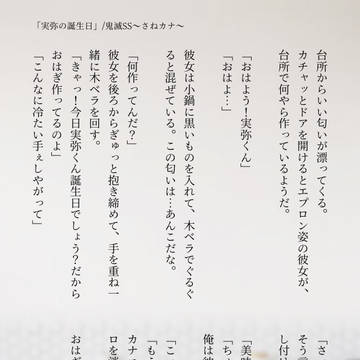 「実弥の誕生日」/鬼滅SS〜さねカナ〜
台所からいい匂いが漂ってくる。
カチャッとドアを開けるとエプロン姿の彼女が、
台所で何やら作っているようだ。
「おはよう!実弥くん」
「おはよ…」
彼女は小鍋に黒いものを入れて、木ベラでぐるぐ
ると混ぜている。この匂いは…あんこだな。
「何作ってんだ?」
彼女を後ろからぎゅっと抱き締めて、手を重ね一
緒に木ベラを回す。
「きゃっ!今日実弥くん誕生日でしょう?だから
おはぎ作ってるのよ」
「こんなに冷たい手ぇしやがって」
「さ
そう言
し付け
「美味
「ちゅ
俺は彼
「こ
「もう
カナ
ロを
おはぎ